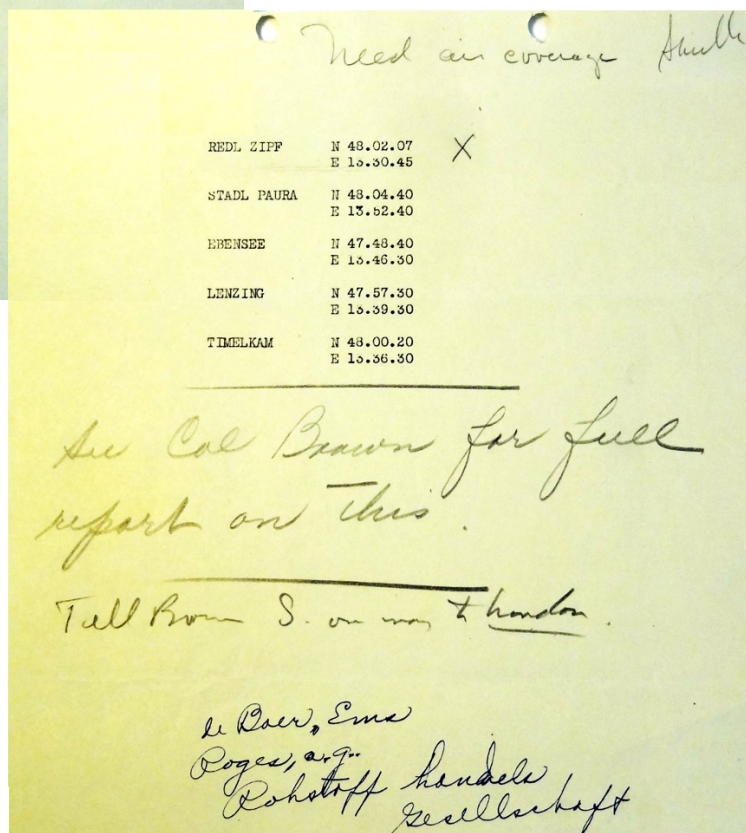 Need air coverage
REDL ZIPF N 48.02.07 X
E 13.30.45
STADL PAURA N 48.04.40
E 13.52.40
EBENSEE N 47.48.40
E 13.46.30
LENZING N 47.57.30
E 13.39.30
TIMELKAM N 48.00.20
E 13.36.30
See Col Brown for full
report on this.
Tell Brown S. on way to London.
de Boer, Ems
Roges, a.g.
Rohstoff handels
Gesellschaft